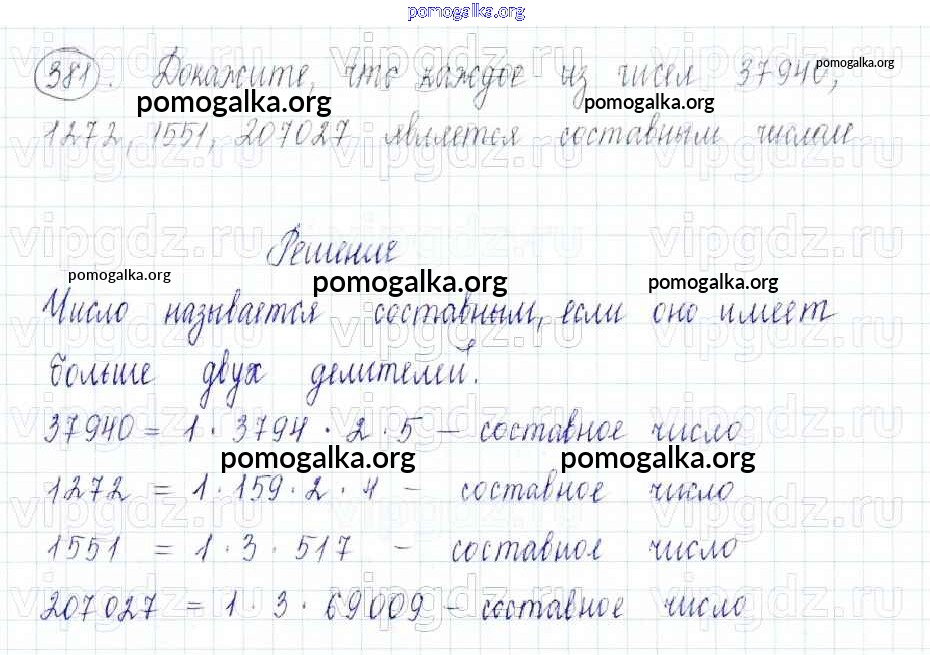 pomogalka.org
381. Докажите, что каждое из чисел 37940,
pomogalka.org
pomogalka.org
pomogalka.org
1272, 1551, 207027 является составным числом
vipgdz.ru vipgdz.ru vipgdz.ru
Решение
pomogalka.org
pomogalka.org
pomogalka.org
Число называется составным, если оно имеет
больше двух делителей.
37940 = 1 · 3794 · 2 · 5 – составное число
pomogalka.org
pomogalka.org
1272 = 1 · 159 · 2 · 4 – составное число
1551 = 1 · 3 · 517 – составное число
207027 = 1 · 3 · 69009 – составное число